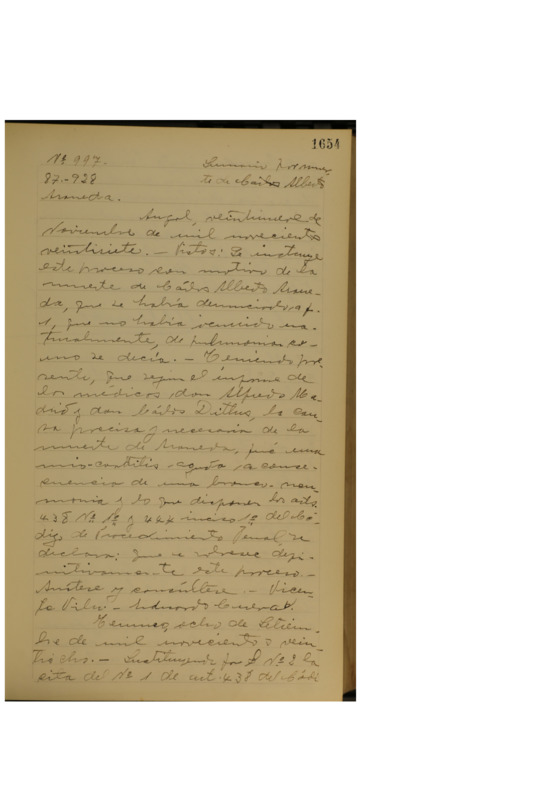 1654
Nº 997.
87.-928
Sumario por muer-
te de Cárlos Alberto
Araneda.
Angol, veintinueve de
Noviembre de mil novecientos
veintisiete. - Vistos: Se instruye
este proceso con motivo de la
muerte de Cárlos Alberto Arane-
da, que se había denunciado a f.
1, que no había ocurrido na-
turalmente, de pulmonía, co-
mo se decía. - Teniendo pre-
sente, que según el informe de
los médicos, don Alfredo
y don Cárlos Dittus, la cau-
sa precisa y necesaria de la
muerte de Araneda, fué una
aguda, a conse-
cuencia de una bronco-neu-
monia y lo que disponen los arts.
438 Nº 1º y 444 inciso 1º del Có-
digo de Procedimiento Penal, se
declara: Que se sobresee defi-
nitivamente este proceso. -
Anótese y consúltese. - Vicen-
te Vilu - Eduardo Cuevas.
Temuco, ocho de Setiem-
bre de mil novecientos vein-
tiocho. - Sustituyendo por el Nº 2 la
cita del Nº 1 de art. 438 del Códi